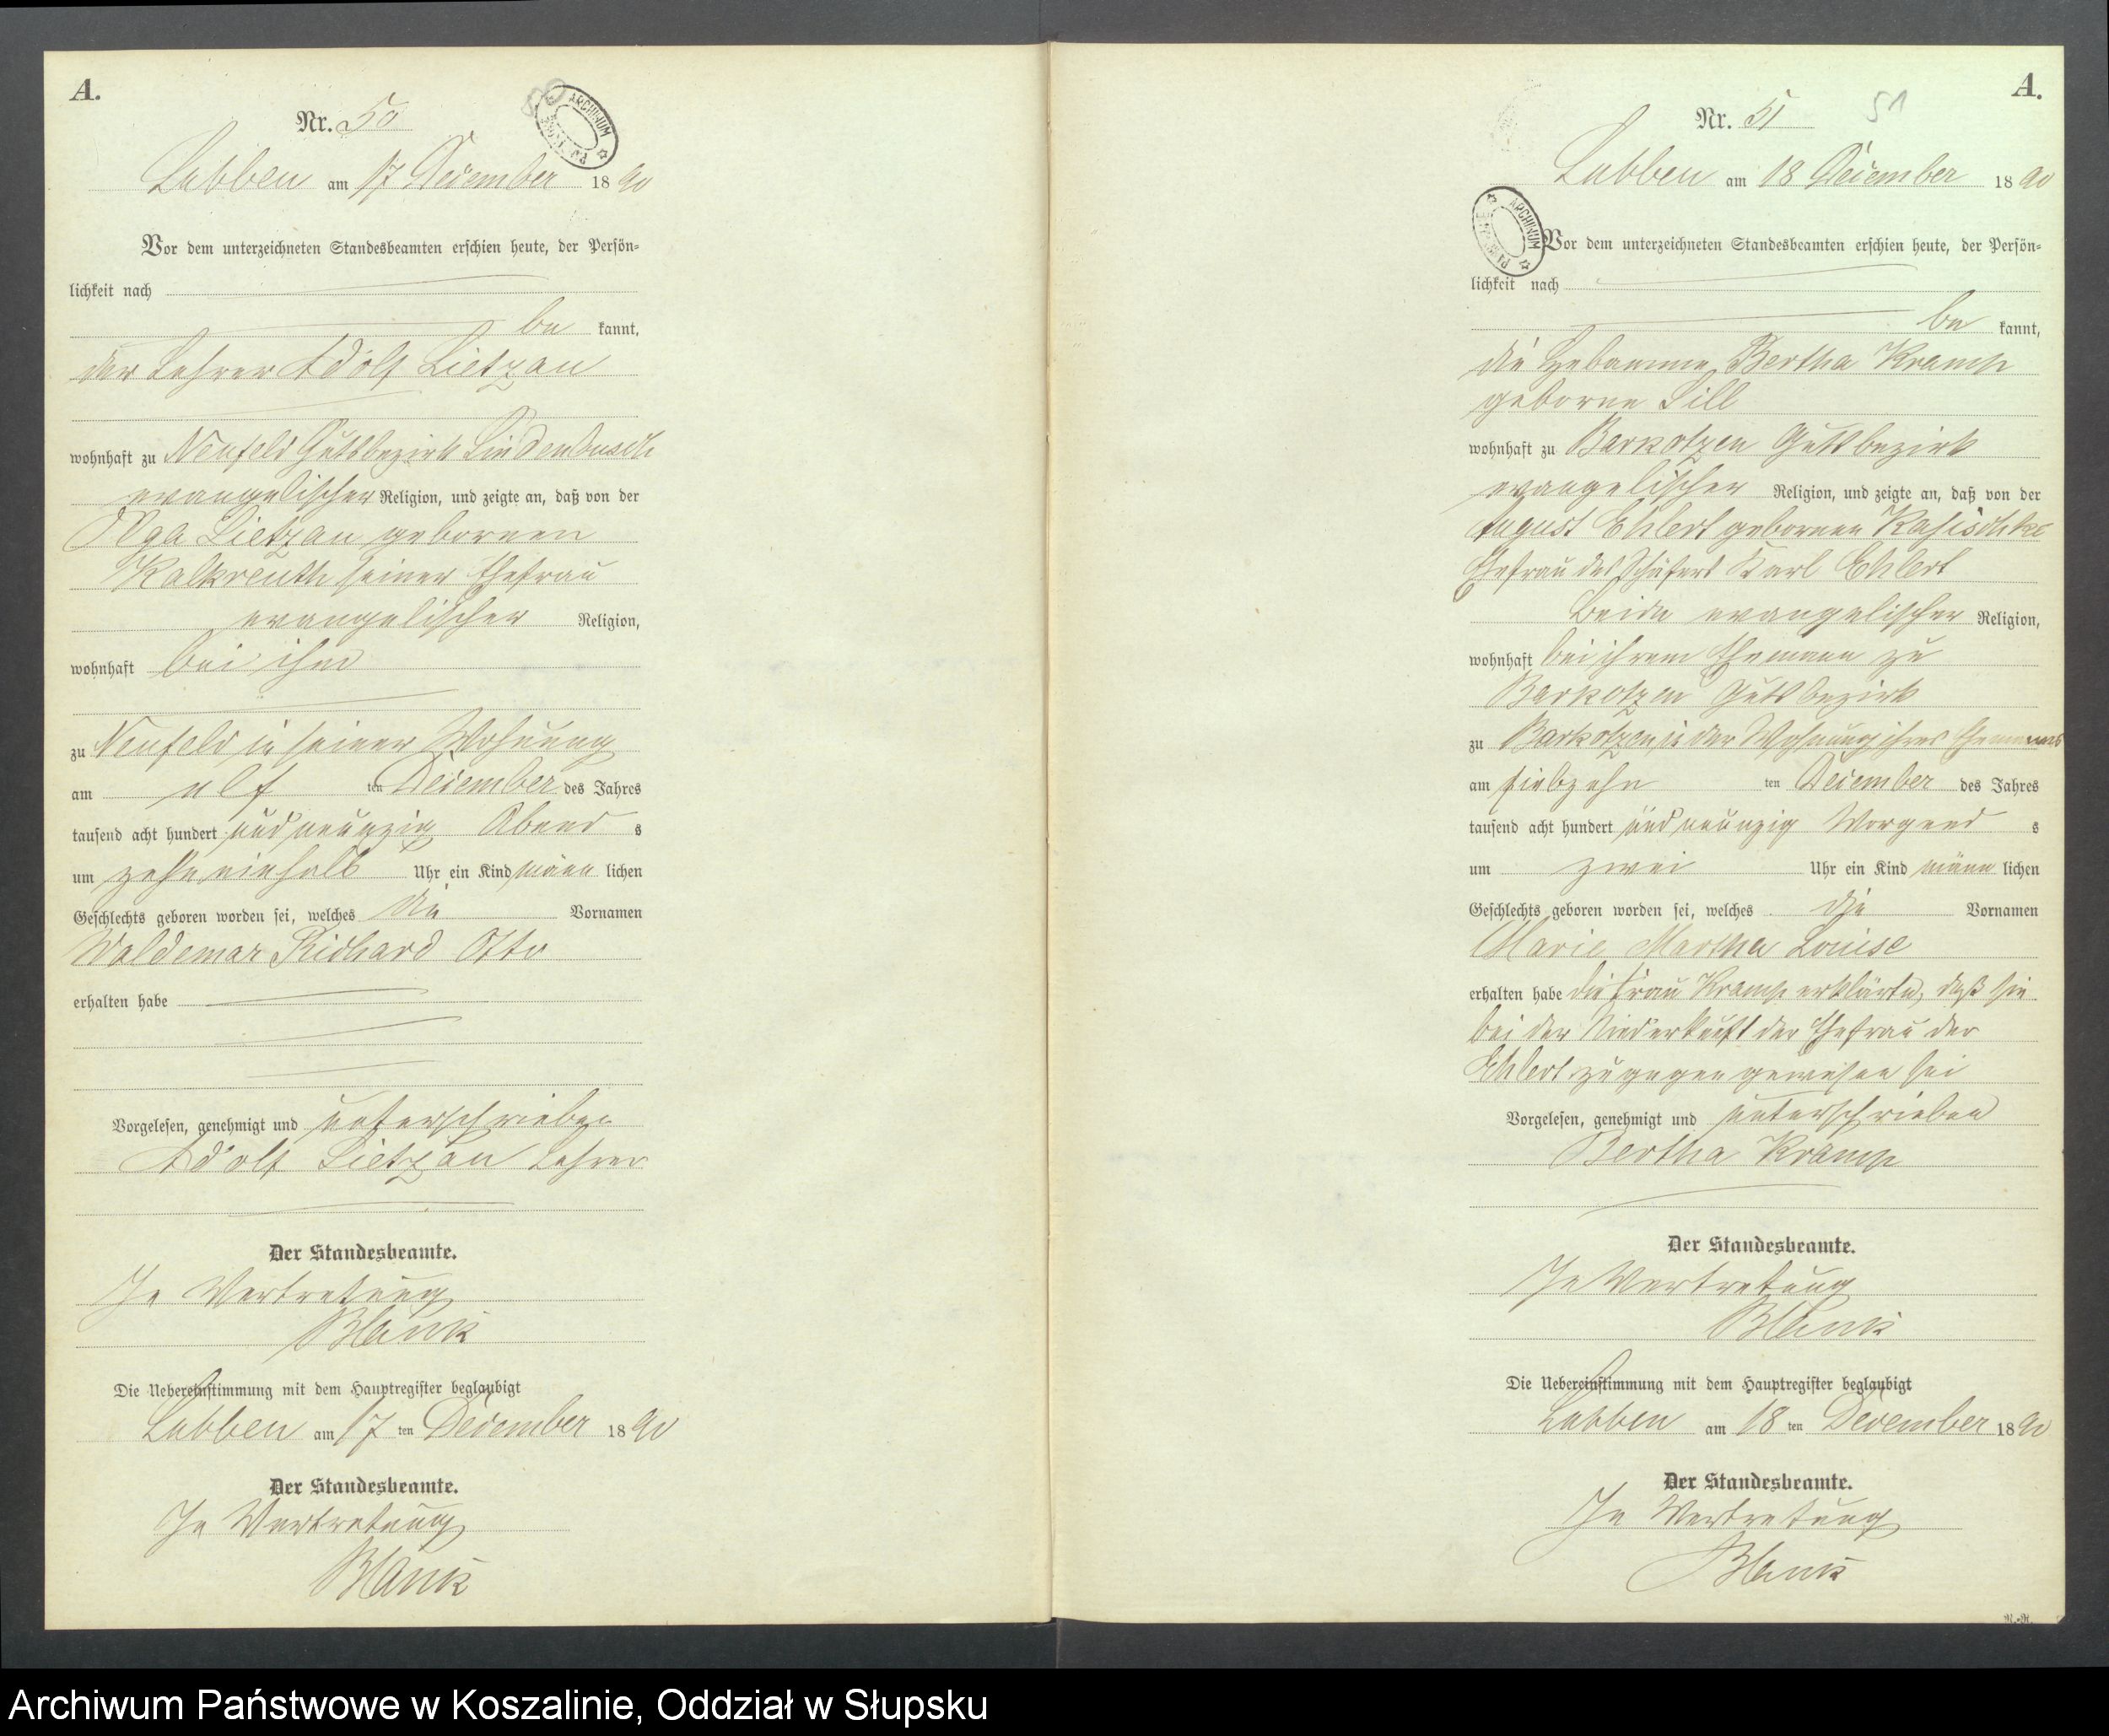 A.
Nr. 50
50
Lubben am 17 December 1890
Vor dem unterzeichneten Standesbeamten erschien heute, der Persön=
lichkeit nach
be kannt,
der Lehrer Adolf Lietzau
wohnhaft zu Neufeld Gutsbezirk Lindenbusch
evangelischer Religion, und zeigte an, daß von der
Olga Lietzau geborenen
Kalkreuth seiner Ehefrau
evangelischer Religion,
wohnhaft bei ihm
zu Neufeld in seiner Wohnung
am elf ten December des Jahres
tausend acht hundert und neunzig Abend s
um zehneinhalb Uhr ein Kind männ lichen
Geschlechts geboren worden sei, welches die Vornamen
Waldemar Richard Otto
erhalten habe
Vorgelesen, genehmigt und unterschrieben
Adolf Lietzau Lehrer
Der Standesbeamte.
In Vertretung
Blank
Die Uebereinstimmung mit dem Hauptregister beglaubigt
Lubben am 17 ten December 1890
Der Standesbeamte.
In Vertretung
Blank
A.
Nr. 51
51
Lubben am 18 December 1890
ARCHIWUM
Vor dem unterzeichneten Standesbeamten erschien heute, der Persön=
lichkeit nach
be kannt,
die Hebamme Bertha Kramp
geborne Lill
wohnhaft zu Barkotzen Gutsbezirk
evangelischer Religion, und zeigte an, daß von der
August Ehlert gebornen Kaschischke
Ehefrau des Schäfers Karl Ehlert
beide evangelischer Religion,
wohnhaft bei ihrem Ehemann zu
Barkotzen Gutsbezirk
zu Barkotzen in der Wohnung ihres Ehemanns
am siebzehn ten December des Jahres
tausend acht hundert und neunzig Morgend s
um zwei Uhr ein Kind männ lichen
Geschlechts geboren worden sei, welches die Vornamen
Marie Martha Louise
erhalten habe die Frau Kramp erklärte, daß sie
bei der Niederkunft der Ehefrau der
Ehlert zugegen gewesen sei
Vorgelesen, genehmigt und unterschrieben
Bertha Kramp
Der Standesbeamte.
In Vertretung
Blank
Die Uebereinstimmung mit dem Hauptregister beglaubigt
Lubben am 18 ten December 1890
Der Standesbeamte.
In Vertretung
Blank
Archiwum Państwowe w Koszalinie, Oddział w Słupsku